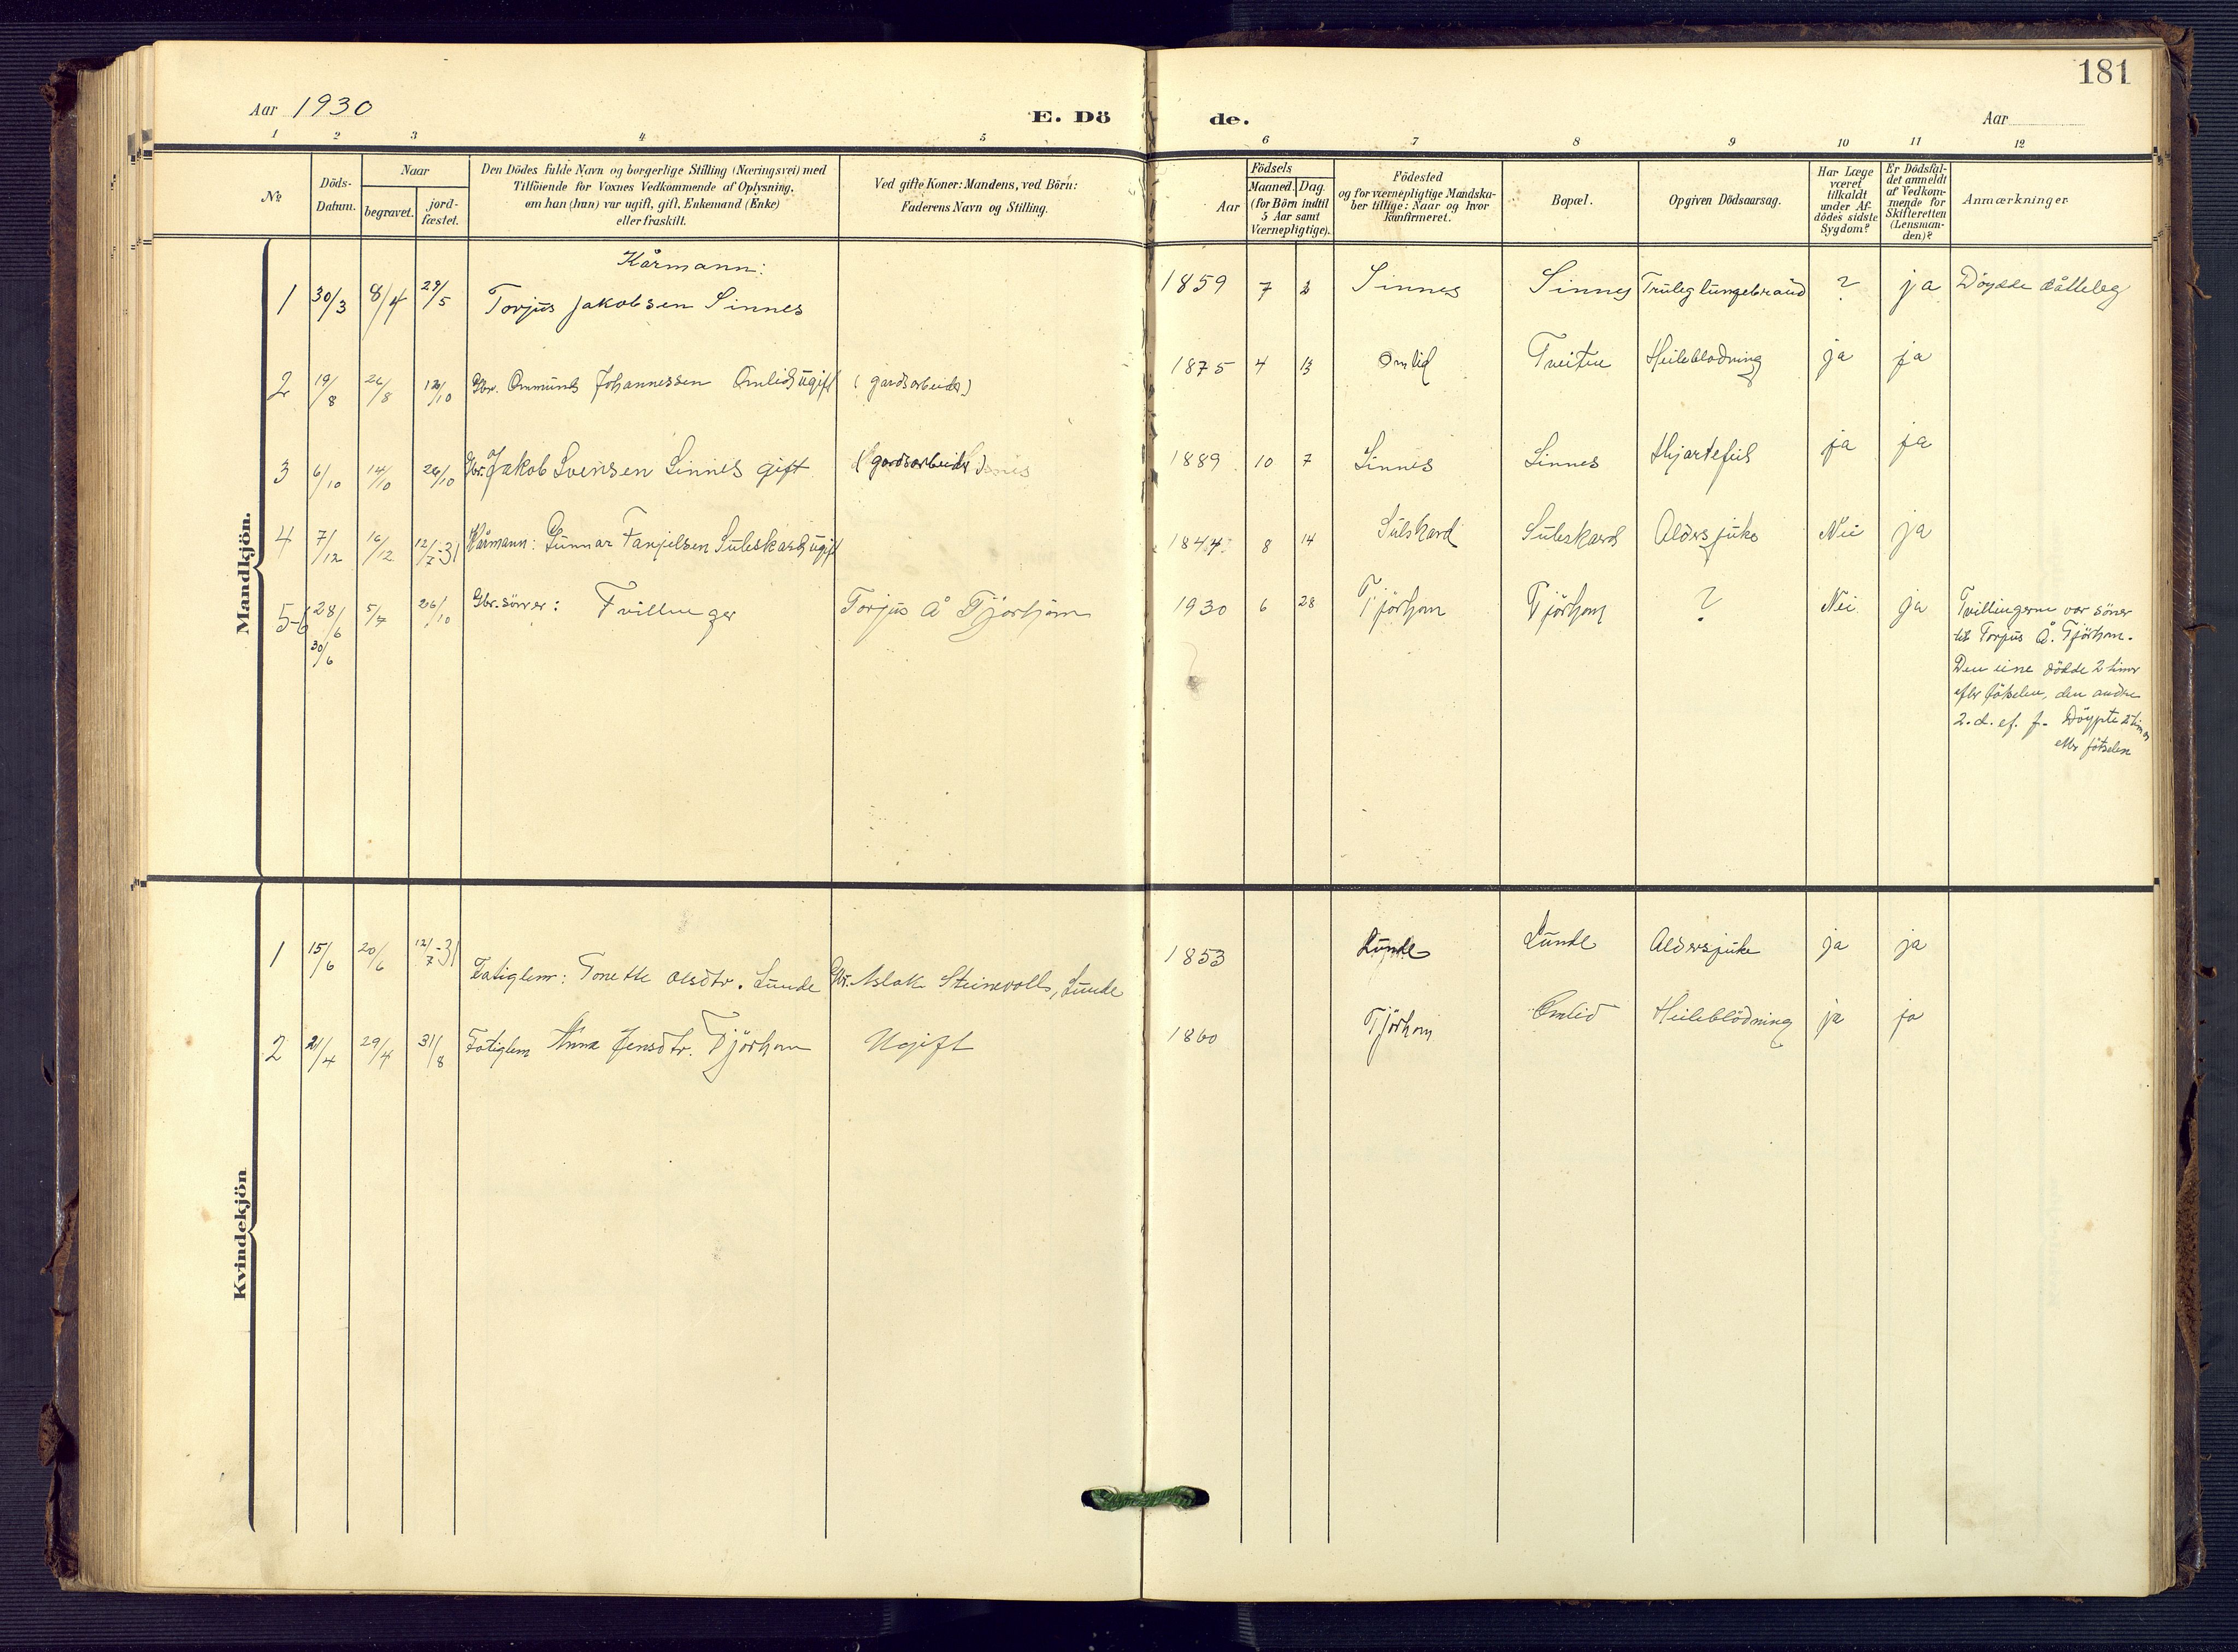 181
Aar 1930
E. Dö
de.
Aar
1 2 3 4 5 6 7 8 9 10 11 12
No.
Döds-
Datum.
Naar
begravet.
jord-
fæstet.
Den Dödes fulde Navn og borgerlige Stilling (Næringsvei) med
Tilföiende for Voxnes Vedkommende af Oplysning,
om han (hun) var ugift, gift, Enkemand (Enke)
eller fraskilt.
Ved gifte Koner: Mandens, ved Börn:
Faderens Navn og Stilling.
Födsels
Aar
Maaned. Dag.
(for Börn indtil
5 Aar samt
Værnepligtige).
Födested
og for værnepligtige Mandska-
ber tillige: Naar og hvor
konfirmeret.
Bopæl.
Opgiven Dödsaarsag.
Har Læge
været
tilkaldt
under Af-
dödes sidste
Sygdom?
Er Dödsfal-
det anmeldt
af Vedkom-
mende for
Skifteretten
(Lensman-
den)?
Anmærkninger
Mandkjön.
Kårmann:
1 30/3 8/4 29/5 Torjus Jakobsen Sinnes 1859 7 2 Sinnes Sinnes Truleg lungebrand ? ja Döydde dåtteleg
2 19/8 26/8 12/10 Gbr. Ommund Johannessen Omlid ugift (gardsarbeider) 1875 4 13 Omlid Tveiten Heileblödning ja ja
3 6/10 14/10 26/10 Gbr. Jakob Svensen Sinnes gift (gardsarbeider) 1889 10 7 Sinnes Sinnes Hjartefeil ja ja
4 7/12 16/12 12/7-31 Kårmann: Gunnar Tarjeisen Suleskard ugift 1844 8 14 Sulskard Suleskard Aldersjuke Nei ja
5-6 28/6 5/7 26/10 Gbr. söner: Tvillinger Torjus Å Tjörhom 1930 6 28 Tjörhom Tjörhom ? Nei ja Tvillingerne var söner
30/6
til Torjus Å. Tjörhom.
Den eine dödde 2 timer
efter fötselen, den andre
2. d. ef. f. Döypte 2 timer
etter fötselen
Kvindekjön
1 15/6 20/6 12/7-31 Fatiglem: Tonette Olsdtr. Lunde Gbr. Aslak Steinevoll, Lunde 1853 Lunde Lunde Aldersjuke ja ja
2 21/4 29/4 31/8 Fatiglem Anna Jensdtr. Tjörhom Ugift 1860 Tjörhom Omlid Heileblödning ja ja